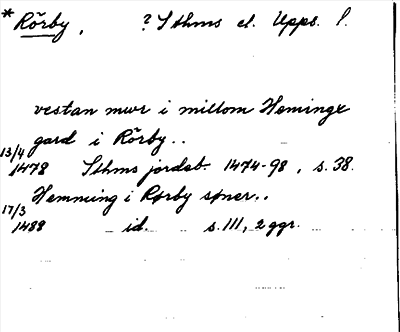 *Rörby, ? Sthms el. Upps. l.
vestan mwr i millom Heminge
gard i Rörby..
13/4 1478 Sthms jordeb. 1474-98, s. 38.
Hemming i Rørby søner..
17/3 1488 id. s. 111, 2 ggr.